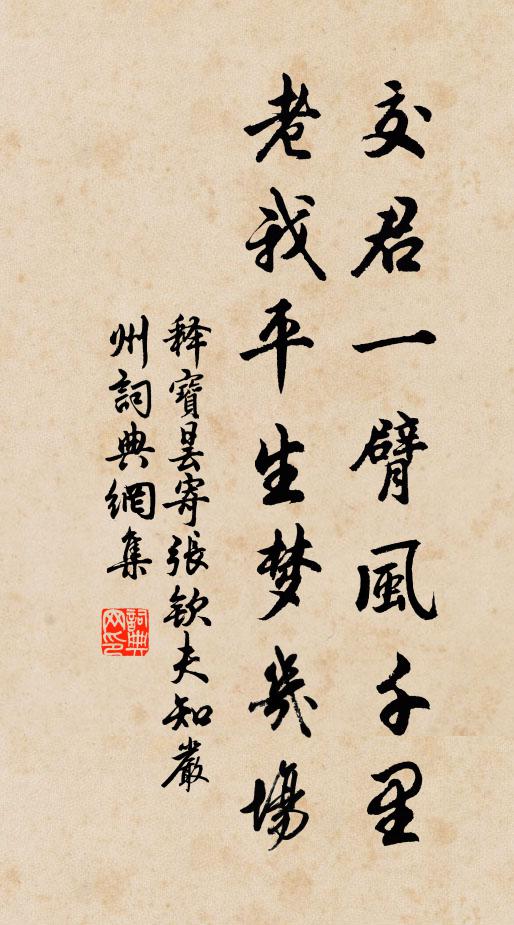 交君一臂風千里
老我平生梦幾場
释寶曇寄張欽夫知嚴
州詞典網集
詞典网印